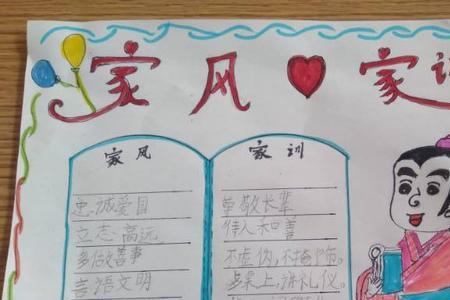 家风 家训
家风
忠诚爱国
立志高远
多做善事
言语文明
家训
尊敬长辈
待人和善
不虚伪,不掩饰。
桌上,讲礼仪。